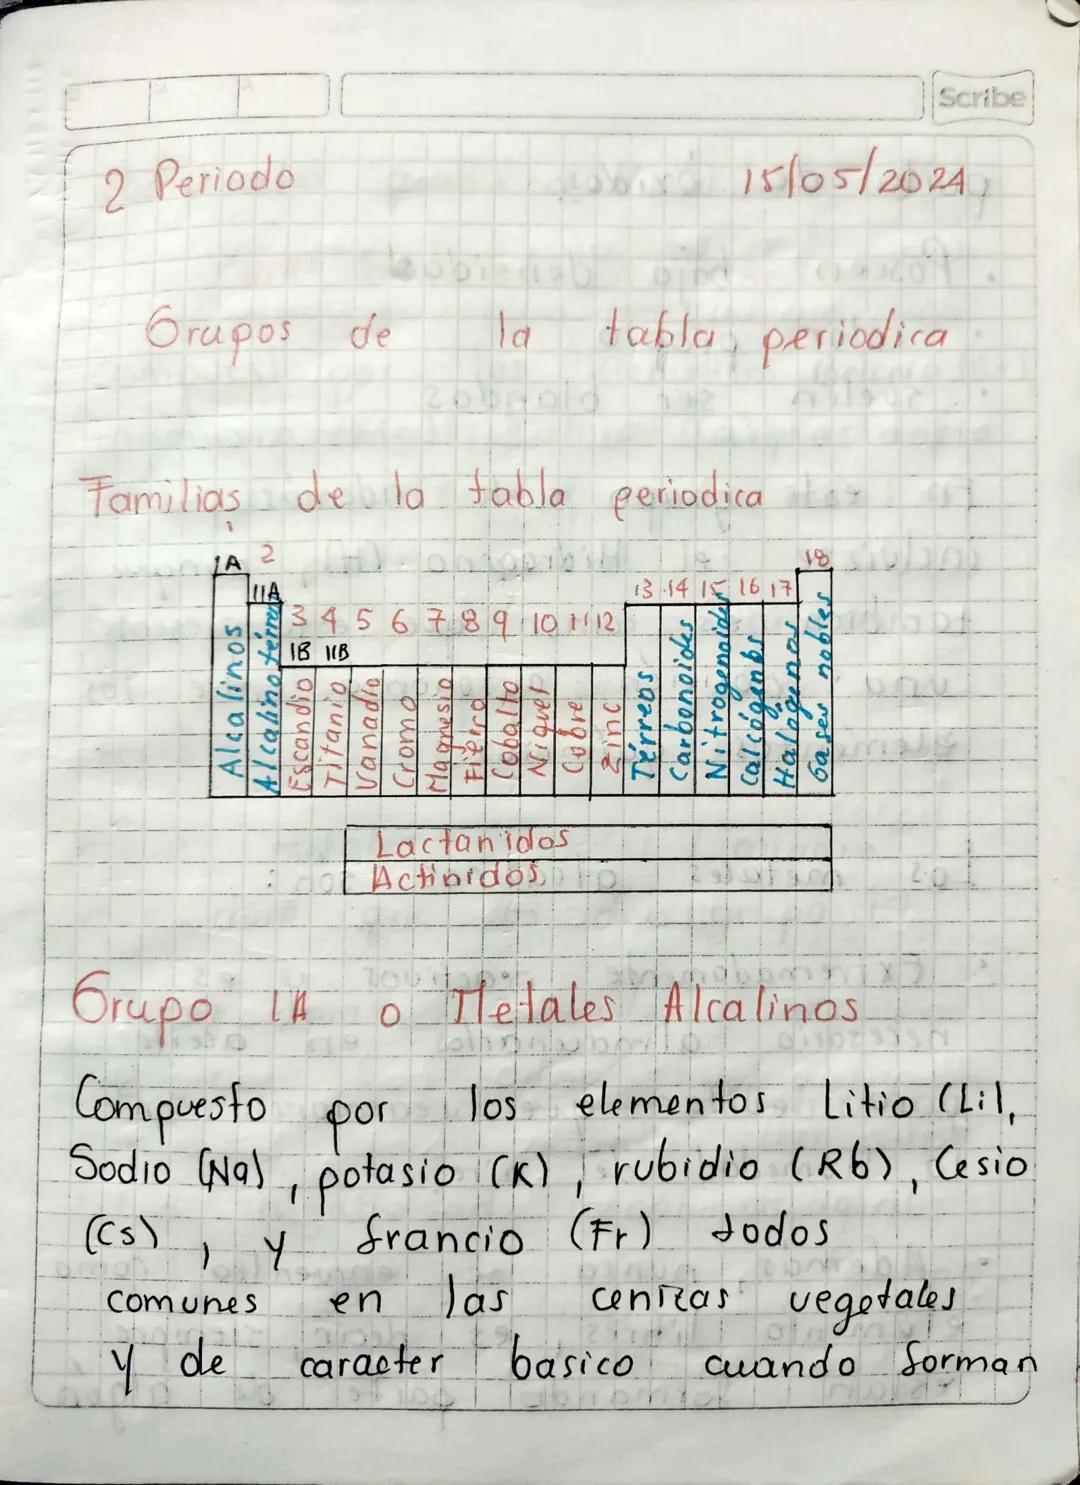 Scribe
2 Periodo 15/05/2024
Grupos de la tabla periodica
Familias de la tabla periodica
1
1A 2 18
11A 13 14 15 16 17
3 4 5 6 7 8 9 10 11 12
1B 11B
Alcalinos
Alcalinotérreos
Escandio
Titanio
Vanadio
Cromo
Magnesio
Fierro
Cobalto
Niquel
Cobre
Zinc
Térreos
Carbonoides
Nitrogenoides
Calcógenos
Halógenos
Gases nobles
Lactanidos
Actinidos
Grupo 1A o Metales Alcalinos
Compuesto por los elementos Litio (Li),
Sodio (Na), potasio (K), rubidio (Rb), Cesio
(Cs), y francio (Fr) todos
comunes en las cenizas vegetales
y de caracter basico cuando forman